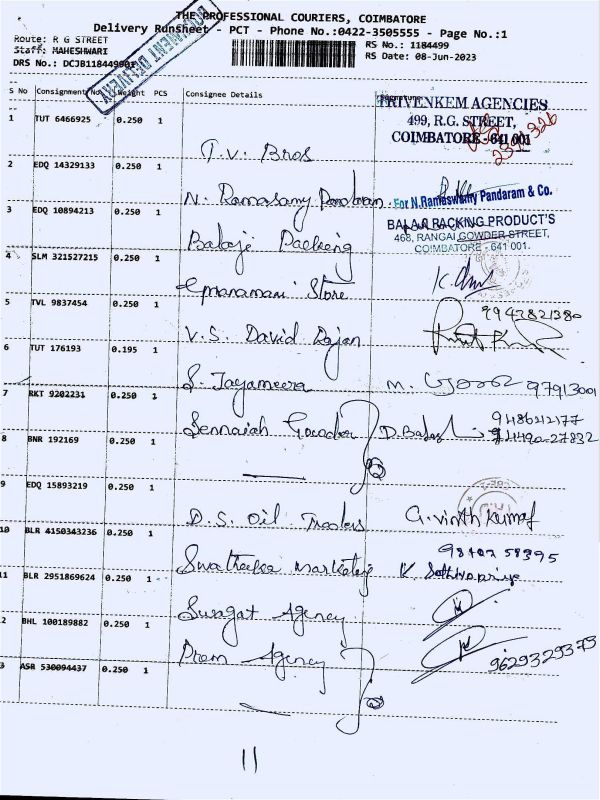 THE PROFESSIONAL COURIERS, COIMBATORE
Delivery Runsheet - PCT - Phone No.:0422-3505555 - Page No.:1
Route: R G STREET
RS No.: 1184499
Staff: MAHESHWARI
RS Date: 08-Jun-2023
DRS No.: DCJB1184499001
S No Consignment No Weight PCS Consignee Details Signature
TRIVENKEM AGENCIES
499, R.G. STREET,
COIMBATORE - 641 001
1 TUT 6466925 0.250 1
T.V. Bros
2 EDQ 14329133 0.250 1
N. Ramasamy Pandaram
For N.Ramaswamy Pandaram & Co.
3 EDQ 10894213 0.250 1
Balaji Packing
BALAJI PACKING PRODUCT'S
468, RANGAI GOWDER STREET,
COIMBATORE - 641 001.
4 SLM 321527215 0.250 1
Store
5 TVL 9837454 0.250 1
9942821380
V.S. David Rajan
6 TUT 176193 0.195 1
S. Jayameera
97913001
7 RKT 9202231 0.250 1
Sennaiah Gounder D.Balaji
8 BNR 192169 0.250 1
9 EDQ 15893219 0.250 1
D.S. Oil Traders G.vinith kumar
10 BLR 4150343236 0.250 1
Marketing K Sathiyapriya
11 BLR 2951869624 0.250 1
Swagat Agency
2 BHL 100189882 0.250 1
Prem Agency
9629329375
3 ASR 530094437 0.250 1
11